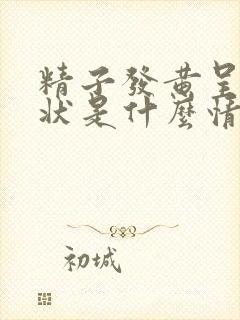 精子發黃呈
狀是什麼情
初城